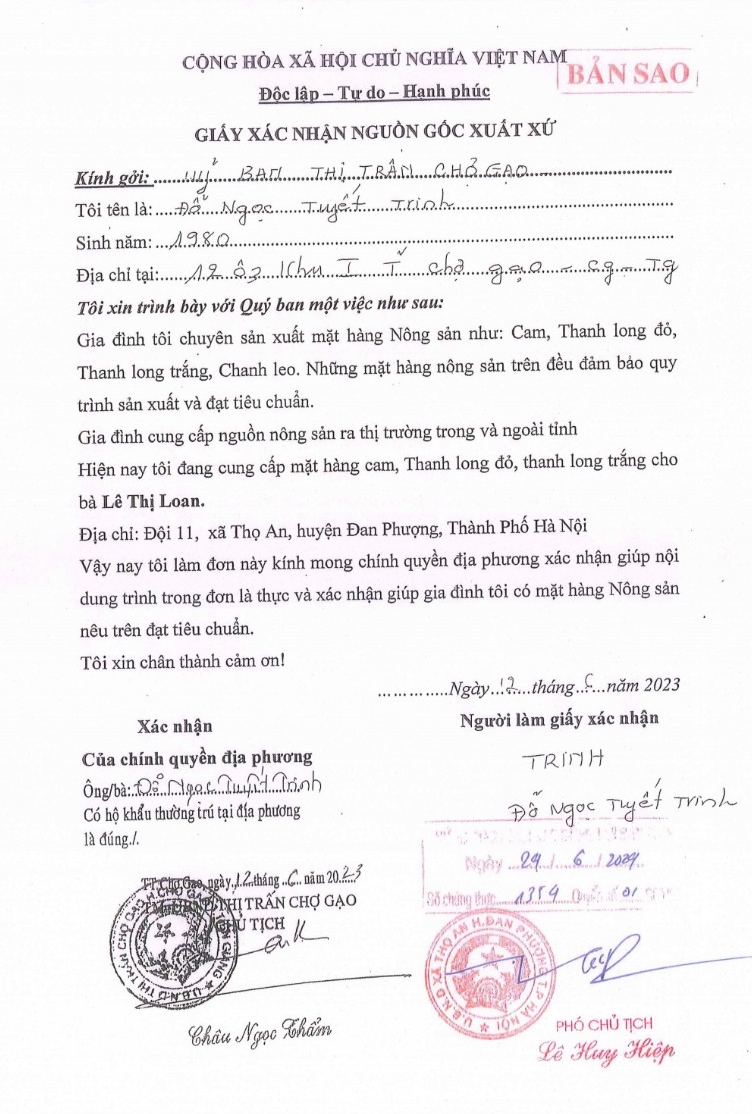 CỘNG HÒA XÃ HỘI CHỦ NGHĨA VIỆT NAM
BẢN SAO
Độc lập – Tự do – Hạnh phúc
GIẤY XÁC NHẬN NGUỒN GỐC XUẤT XỨ
Kính gởi: Uỷ BAN THỊ TRẤN CHỢ GẠO
Tôi tên là: Đỗ Ngọc Tuyết Trinh
Sinh năm: 1980
Địa chỉ tại: Khu I chợ gạo – cg – Tg
Tôi xin trình bày với Quý ban một việc như sau:
Gia đình tôi chuyên sản xuất mặt hàng Nông sản như: Cam, Thanh long đỏ,
Thanh long trắng, Chanh leo. Những mặt hàng nông sản trên đều đảm bảo quy
trình sản xuất và đạt tiêu chuẩn.
Gia đình cung cấp nguồn nông sản ra thị trường trong và ngoài tỉnh
Hiện nay tôi đang cung cấp mặt hàng cam, Thanh long đỏ, thanh long trắng cho
bà Lê Thị Loan.
Địa chỉ: Đội 11, xã Thọ An, huyện Đan Phượng, Thành Phố Hà Nội
Vậy nay tôi làm đơn này kính mong chính quyền địa phương xác nhận giúp nội
dung trình trong đơn là thực và xác nhận giúp gia đình tôi có mặt hàng Nông sản
nêu trên đạt tiêu chuẩn.
Tôi xin chân thành cảm ơn!
Ngày 12 tháng 6 năm 2023
Xác nhận
Của chính quyền địa phương
Ông/bà: Đỗ Ngọc Tuyết Trinh
Có hộ khẩu thường trú tại địa phương
là đúng./.
TT Chợ Gạo, ngày 12 tháng 6 năm 2023
TM. UBND THỊ TRẤN CHỢ GẠO
CHỦ TỊCH
Châu Ngọc Thẩm
Người làm giấy xác nhận
TRINH
Đỗ Ngọc Tuyết Trinh
Ngày 29 / 6 /
Số chứng thực 1354 Quyển số 01
U.B.N.D XÃ THỌ AN H.ĐAN PHƯỢNG T.P HÀ NỘI
PHÓ CHỦ TỊCH
Lê Huy Hiệp